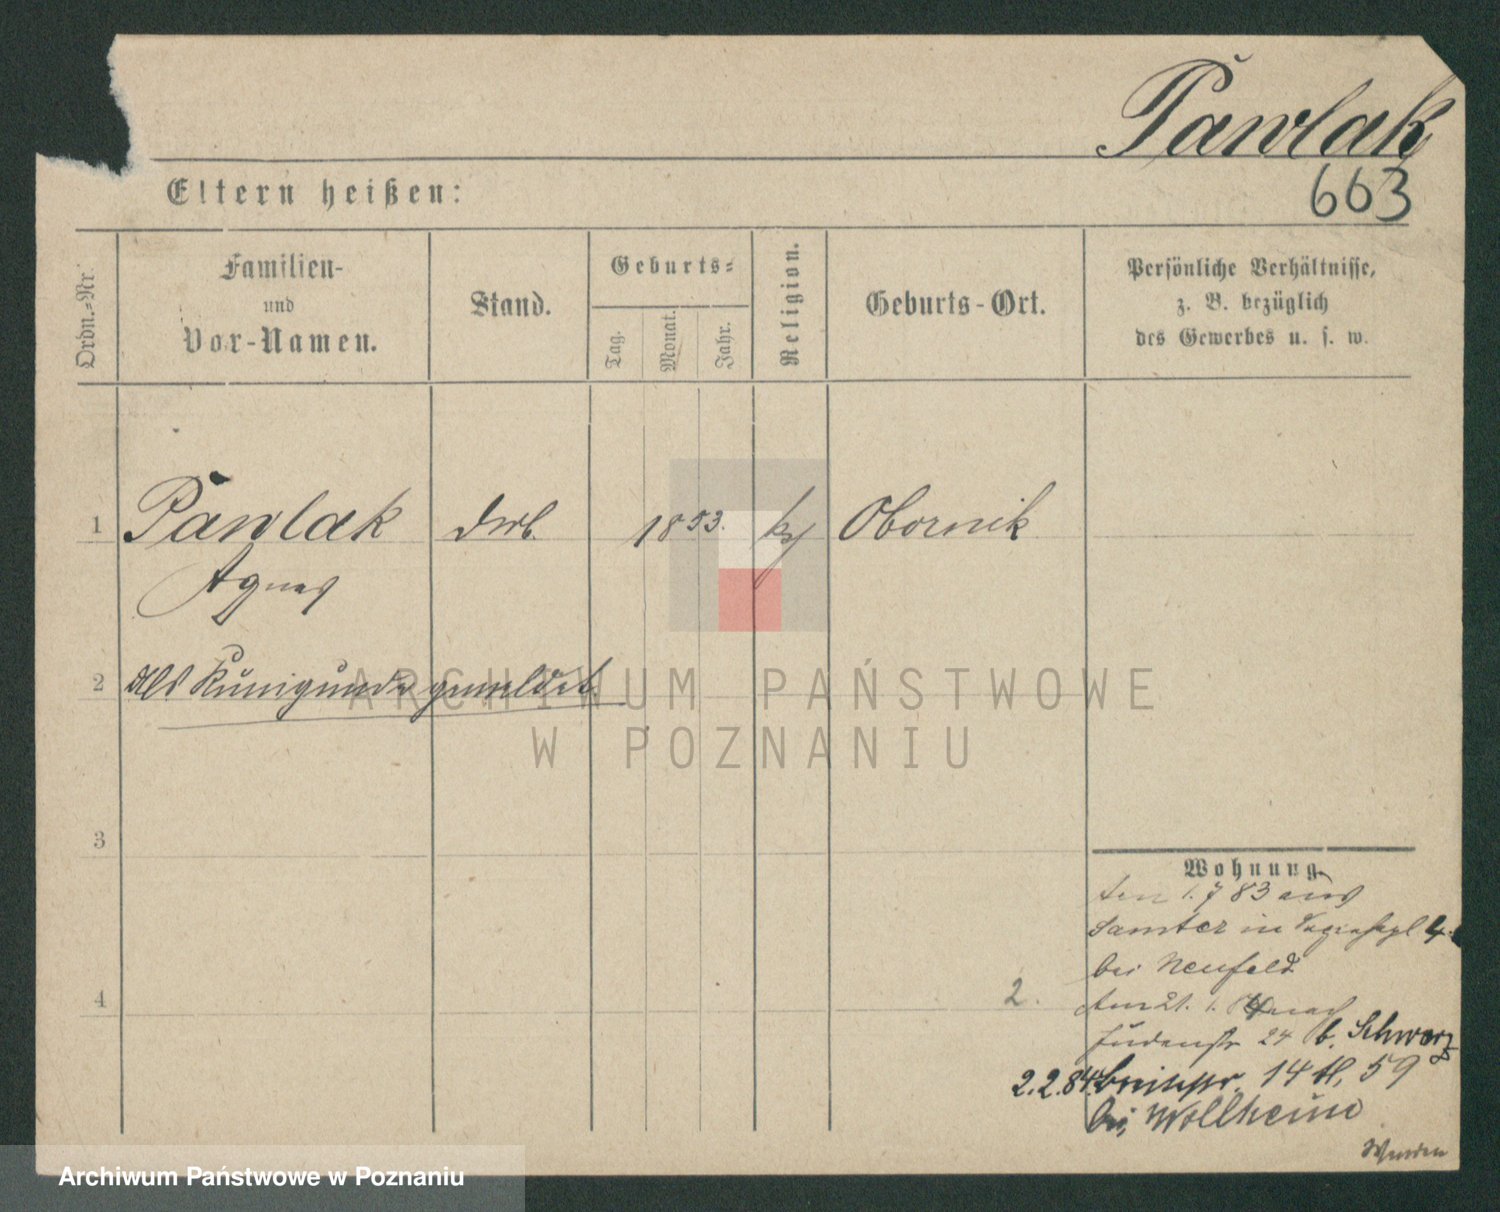 Pawlak
663
Eltern heißen:
Ordn.-Nr.
Familien-
und
Vor-Namen.
Stand.
Geburts-
Tag.
Monat.
Jahr.
Religion.
Geburts-Ort.
Persönliche Verhältnisse,
z. B. bezüglich
des Gewerbes u. s. w.
1 Pawlak 1853. Obornik
Agnes
2 Als Kunigunde gemeldet.
ARCHIWUM PAŃSTWOWE
W POZNANIU
3
Wohnung.
1. 7 83 aus
Samter in 4.
bei Neufeld
4
2.
Am 21. 1. 84 nach
Judenstr 24 b. Schwarz
2.2.84 14 II, 59
bei Wollheim
Archiwum Państwowe w Poznaniu